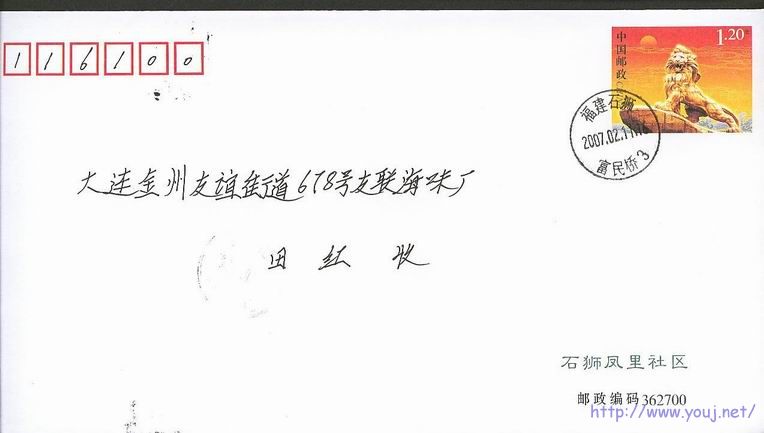 116100
中国邮政
1.20元
福建石狮
2007.02.11.16
富民桥3
大连金州友谊街道678号友联海味厂
田红 收
石狮凤里社区
邮政编码362700
http://www.youj.net/